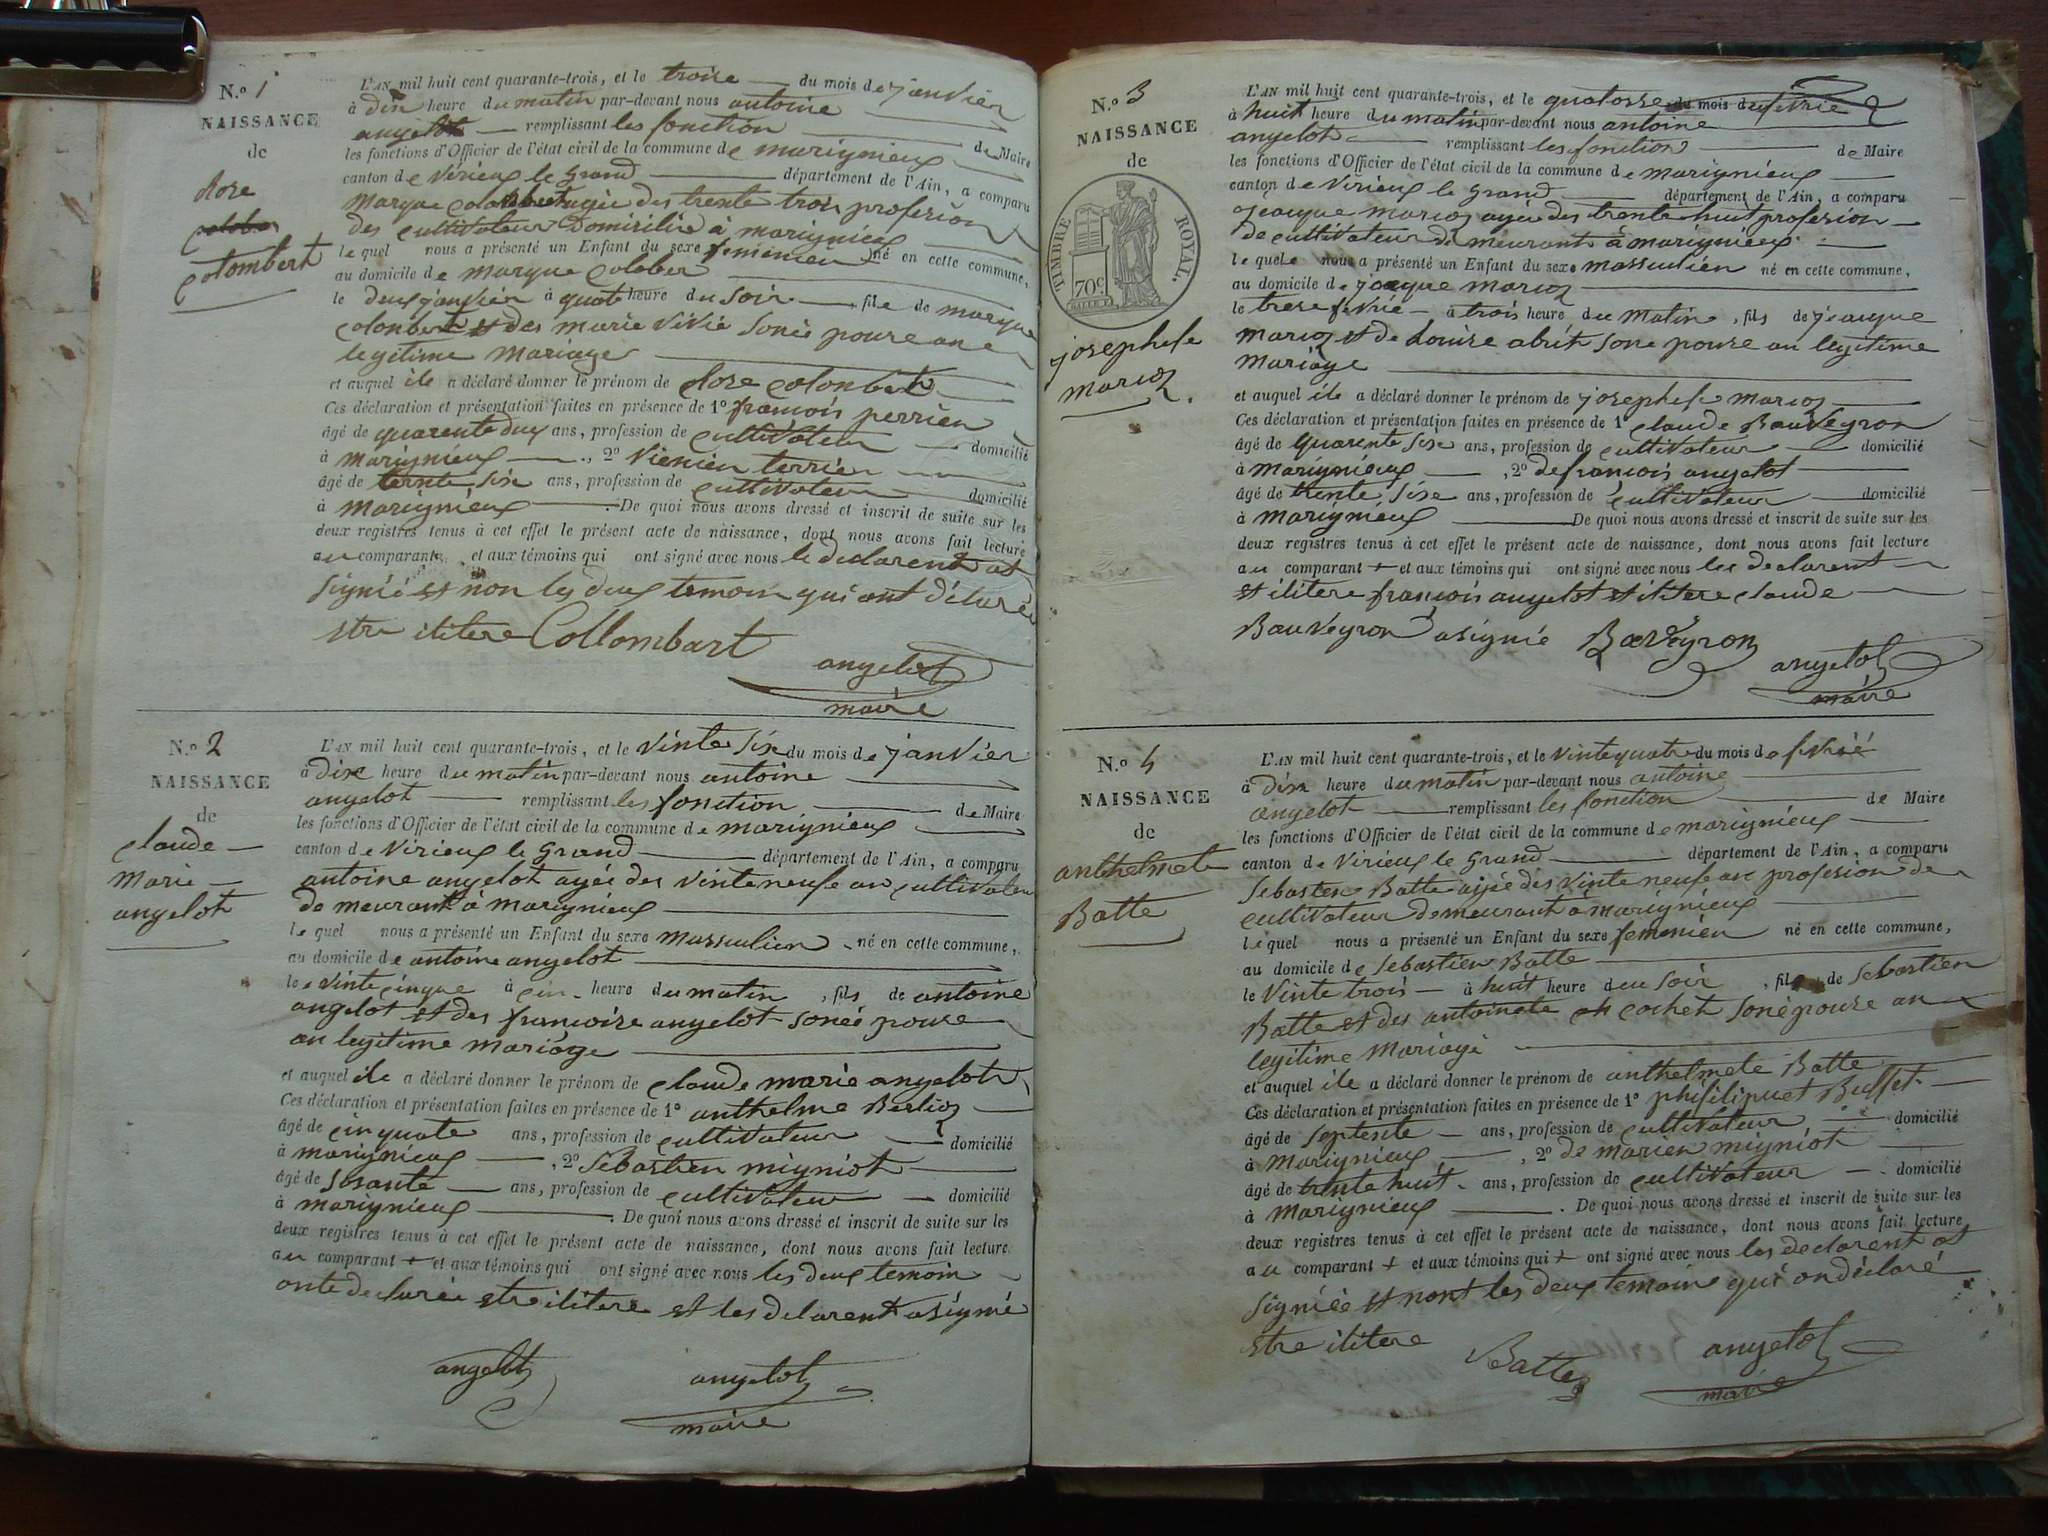 N.º 1
NAISSANCE
de
Rose
colombert
L'AN mil huit cent quarante-trois, et le troise du mois de janvier
à dix heure du matin par-devant nous antoine
angelot remplissant les fonction de Maire
les fonctions d'Officier de l'état civil de la commune de marignieux
canton de Virieux le Grand département de l'Ain, a comparu
Marque colonbert agée des trente trois profesion
des cultivateur Domicilié à marignieux
le quel nous a présenté un Enfant du sexe femenien né en cette commune,
au domicile de marque Colober
le deux janvier à quatre heure du soir file de marque
colonbert et des marie Vivié sonée pouse an
legitime Mariage
et auquel ile a déclaré donner le prénom de Rose colonbert
Ces déclaration et présentation faites en présence de 1º françois perrien
âgé de quarente dux ans, profession de cultivateur domicilié
à Marignieux, 2º Viencien terrier
âgé de trente sixe ans, profession de cultivateur domicilié
à Marignieux. De quoi nous avons dressé et inscrit de suite sur les
deux registres tenus à cet effet le présent acte de naissance, dont nous avons fait lecture
au comparant et aux témoins qui ont signé avec nous le declarent at
signié et non les deux temoin qui ont déclaré
etre ilitere Collombart
angelot
maire
N.º 2
NAISSANCE
de
claude
Marie
angelot
L'AN mil huit cent quarante-trois, et le vinte sixe du mois de janvier
à dixe heure du matin par-devant nous antoine
angelot remplissant les fonction de Maire
les fonctions d'Officier de l'état civil de la commune de marignieux
canton de Virieux le Grand département de l'Ain, a comparu
antoine angelot agée des vinte neufe an cultivateur
de meurant à Marignieux
le quel nous a présenté un Enfant du sexe Massculien né en cette commune,
au domicile de antoine angelot
le vinte cinque à cin heure du matin, fils de antoine
angelot et des françoise angelot sonée pouse
an legitime Mariage
et auquel ile a déclaré donner le prénom de claude marie angelot
Ces déclaration et présentation faites en présence de 1º anthelme Berlioz
âgé de cinquate ans, profession de cultivateur domicilié
à marignieux, 2º Sebastien migniot
âgé de sosante ans, profession de cultivateur domicilié
à marignieux. De quoi nous avons dressé et inscrit de suite sur les
deux registres tenus à cet effet le présent acte de naissance, dont nous avons fait lecture
au comparant et aux témoins qui ont signé avec nous les deux temoin
onte declarée etre ilitere et les delarent asignié
angelot
angelot
maire
N.º 3
NAISSANCE
de
TIMBRE ROYAL.
70c
josephese
marioz
L'AN mil huit cent quarante-trois, et le quatosse du mois de fevrie
à huit heure du matin par-devant nous antoine
angelot remplissant les fonction de Maire
les fonctions d'Officier de l'état civil de la commune de marignieux
canton de Virieux le Grand département de l'Ain, a comparu
jeacque marioz agée des trente huit profesion
de cultivateur de meurant à marignieux
le quele nous a présenté un Enfant du sexe massculien né en cette commune,
au domicile de jeacque marioz
le trese fevrié à trois heure du Matin, fils de jeacque
marioz et de Louise abrit sone pouse an legitime
Mariage
et auquel ile a déclaré donner le prénom de josephese marioz
Ces déclaration et présentation faites en présence de 1º claude BauVeyron
âgé de quarente sixe ans, profession de cultivateur domicilié
à Marignieux, 2º de françois angelot
âgé de trente sixe ans, profession de cultivateur domicilié
à Marignieux De quoi nous avons dressé et inscrit de suite sur les
deux registres tenus à cet effet le présent acte de naissance, dont nous avons fait lecture
au comparant et aux témoins qui ont signé avec nous les declarent
et ilitere françois angelot et ilitere claude
BauVeyron asignié BaVeyron
angelot
maire
N.º 4
NAISSANCE
de
anthelmete
Batte
L'AN mil huit cent quarante-trois, et le vinte quatre du mois de fevrié
à dixe heure du matin par-devant nous antoine
angelot remplissant les fonction de Maire
les fonctions d'Officier de l'état civil de la commune de marignieux
canton de Virieux le Grand département de l'Ain, a comparu
Sebastien Batte agée des vinte neufe an profesion de
cultivateur demeurant à marignieux
le quel nous a présenté un Enfant du sexe femenien né en cette commune,
au domicile de Sebastien Batte
le Vinte trois à huit heure du soir, file de Sebastien
Batte et des antoinete cochet sonépouse an
legitime Mariage
et auquel ile a déclaré donner le prénom de anthelmete Batte
Ces déclaration et présentation faites en présence de 1º phifilipuet Buffet
âgé de septente ans, profession de cultivateur domicilié
à Marignieux, 2º de marien migniot
âgé de trente huit ans, profession de cultivateur domicilié
à Marignieux. De quoi nous avons dressé et inscrit de suite sur les
deux registres tenus à cet effet le présent acte de naissance, dont nous avons fait lecture
au comparant et aux témoins qui ont signé avec nous les declarent at
Signiée et nont les deux temoins qui on déclaré
etre ilitere
Batte
angelot
maire